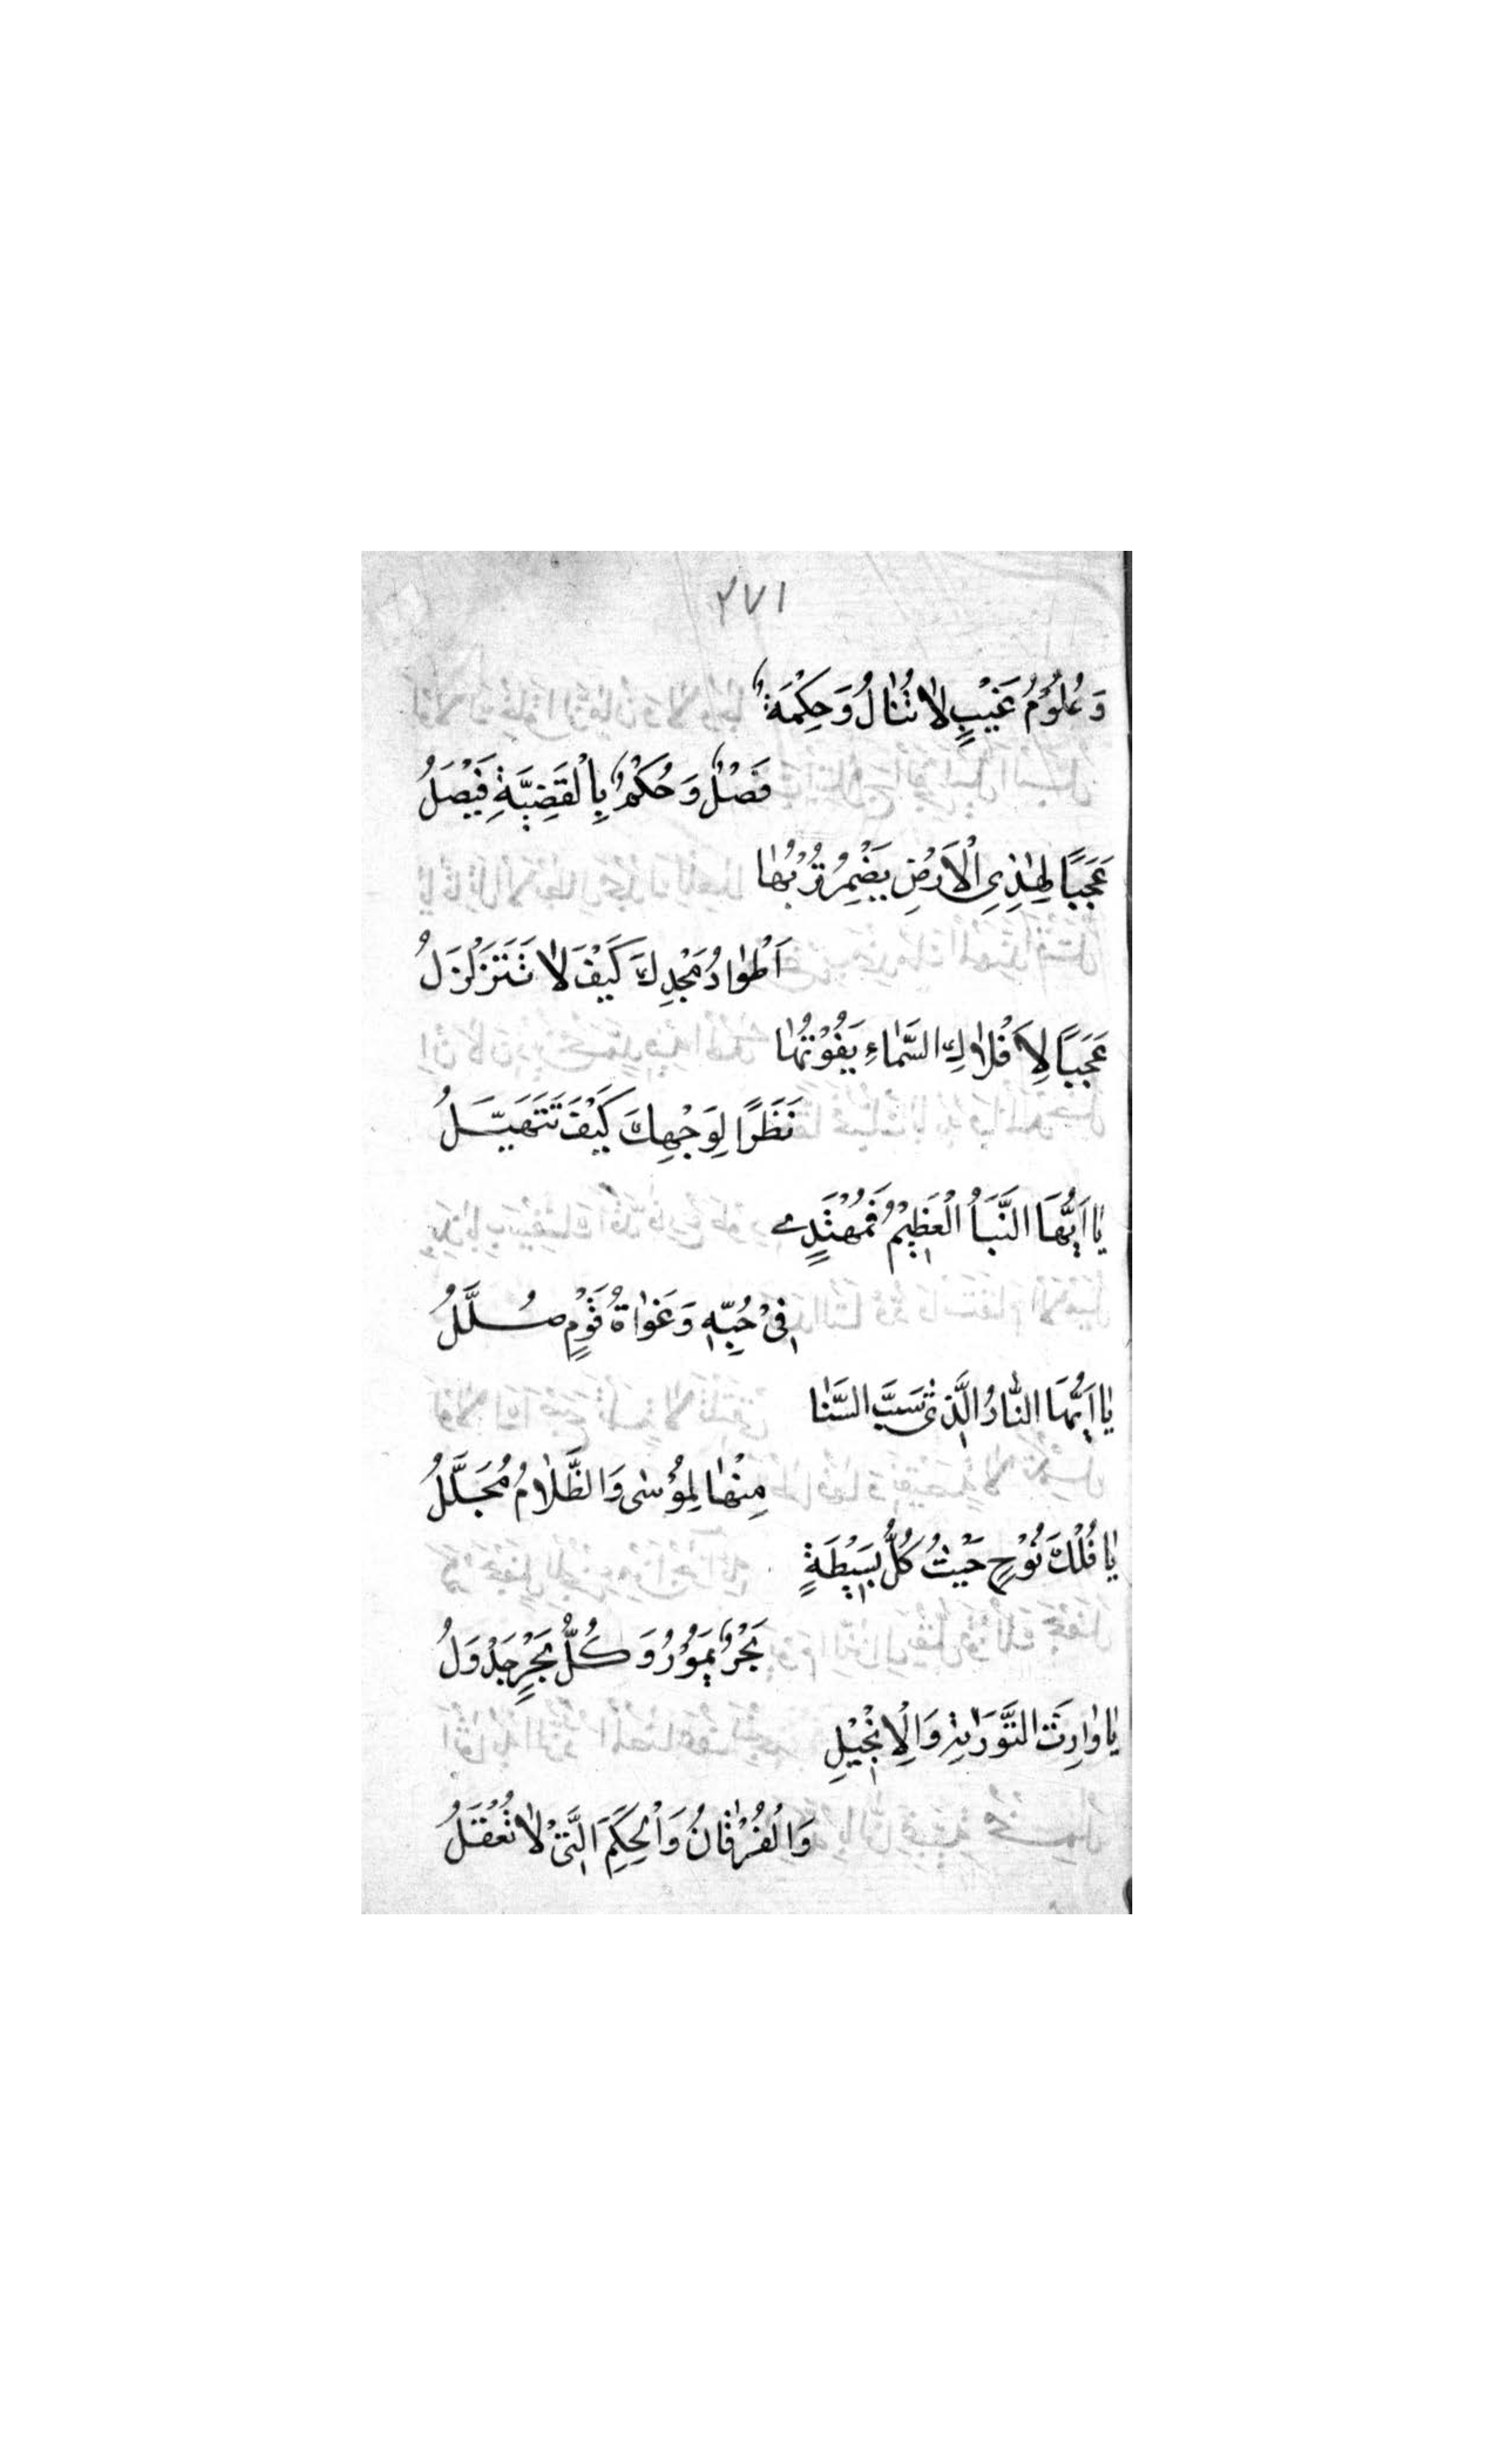 ١٧٢
وَعُلُوْمُ غَيْبٍ لَا تُنَالُ وَحِكْمَةٌ
فَصْلٌ وَحُكْمٌ بِالْقَضِيَّةِ فَيْصَلُ
عَجَبًا لِهٰذِي الْاَرْضِ يَضْمِرُ تُرْبُهَا
اَطْوَادُ مَجْدِكَ كَيْفَ لَا تَتَزَلْزَلُ
عَجَبًا لِاَفْلَاكِ السَّمَاءِ يَفُوْتُهَا
نَظَرًا لِوَجْهِكَ كَيْفَ تَتَهَيَّلُ
يَا اَيُّهَا النَّبَأُ الْعَظِيْمُ فَمُهْتَدٍ
فِيْ حُبِّهِ وَغَوَاةُ قَوْمٍ ضُلَّلُ
يَا اَيُّهَا النَّارُ الَّذِيْ شَبَّ السَّنَا
مِنْهَا لِمُوْسٰى وَالظَّلَامُ مُجَلَّلُ
يَا فُلْكَ نُوْحٍ حَيْثُ كُلُّ بَسِيْطَةٍ
بَحْرٌ يَمُوْرُ وَكُلُّ بَحْرٍ جَدْوَلُ
يَا وَارِثَ التَّوْرَاتِ وَالْاِنْجِيْلِ
وَالْفُرْقَانُ وَالْحِكَمِ الَّتِيْ لَا تُعْقَلُ